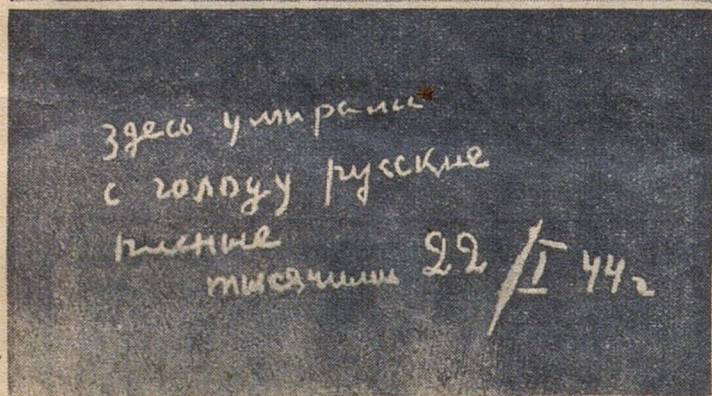 здесь умирали
с голоду русские
пленные
тысячими 22/I 44г